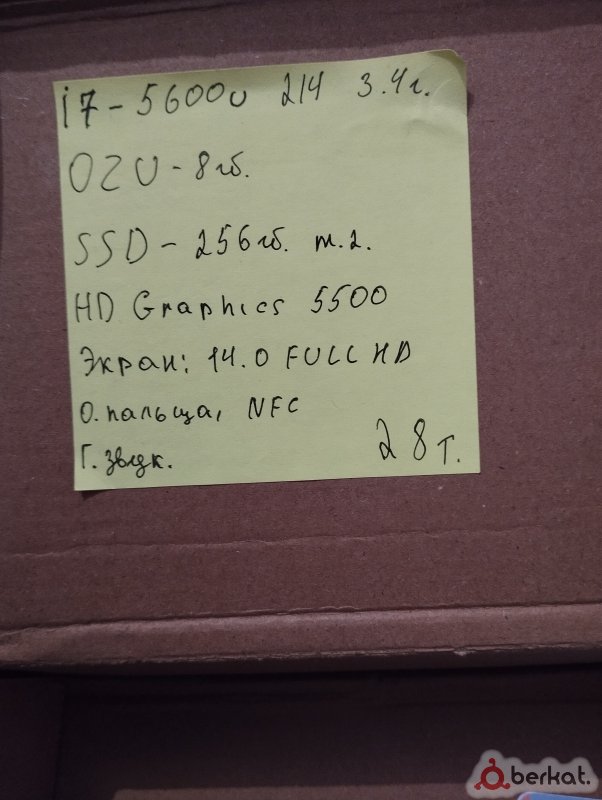 i7-5600U 2/4 3.4г.
OZU-8гб.
SSD-256гб. m.2.
HD Graphics 5500
Экран: 14.0 FULL HD
О.пальца, NFC
Г.звук.
28т.
berkat.